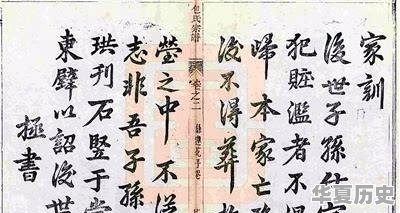 家訓
後世子孫仕
犯賍濫者不
歸本家亡
後不得葬
包氏宗譜 卷之二
塋之中不
志非吾子孫
珙刊石竪于
東壁以詔後世
極書
华夏历史